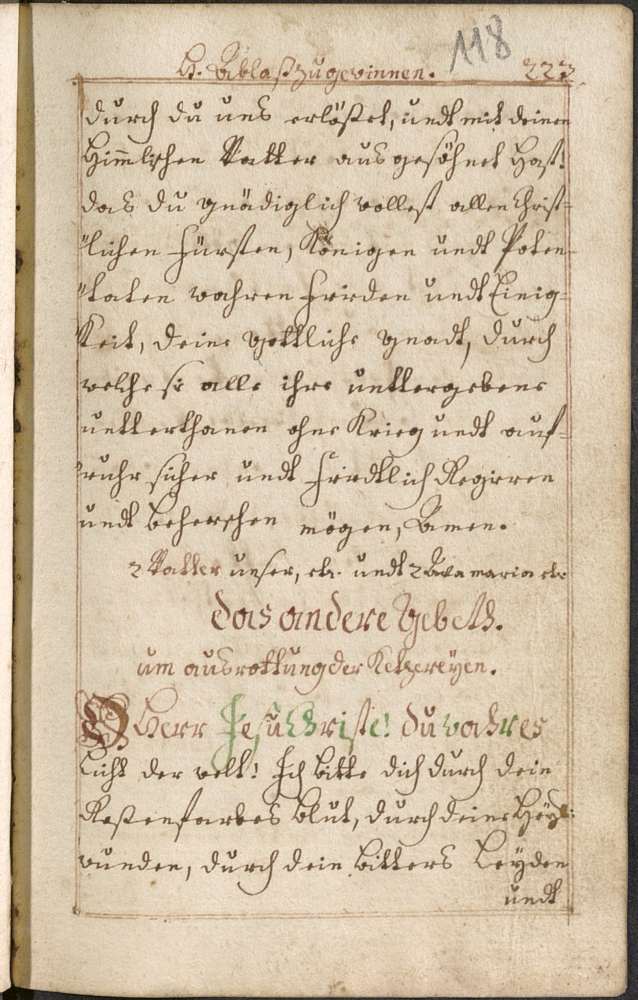 118
H. Ablaß zu gewinnen. 223
durch du uns erlößet, undt mit deinen
Himmlischen Vatter ausgesöhnet hast!
das du gnädiglich wollest allen Christ=
"lichen Fürsten, Königen undt Poten=
"taten wahren Frieden undt Einig=
Keit, deine göttliche gnadt, durch
welche sie alle ihre untergebene
untterthanen ohne Krieg undt auf=
ruhr sicher undt Friedtlich Regieren
undt beherschen mögen, Amen.
2 Vatter unser, etc. undt 2 Ave maria etc
das andere Gebeth.
um ausrottung der Ketzereyen.
O Herr Jesu Christe! du wahres
Licht der welt! Ich bitte dich durch dein
Rosenfarbes blut, durch deine Heyl:
wunden, durch dein bitters Leyden
undt